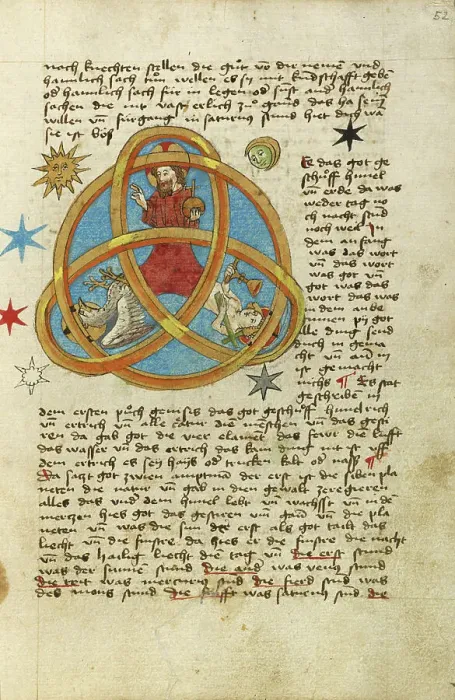 52
noch knechten stellen die gůt vo dir nemen vnd
haimlich sach tůn wellen es sy mit kundschafft geben
od haimlich sach für in legen od sunst and haimlich
sachen die mit vast erlich zů gand das ha sein
willen vn fürgang in saturnus stund hiet dich wa
sie ist böß
E das got ge
schůff himel
vn erde da was
weder tag no
ch nacht stund
noch weil In
dem anfang
was das wort
vn das wort
was got vn
got was das
wort das was
in dem anbe
ginnen py got
alle ding send
durch in gema
cht vn an in
ist gemacht
nichs ¶ Es stat
geschriben in
dem ersten půch genesis das got geschůff himelrich
vn ertrich vn alle natur die menschen vn das gesti
ren da gab got die vier element das fewr die lufft
das wasser vn das ertrich das kain ding mit ist vff
dem ertrich es sey haiß od trucken kalt od naß ¶
Da satzt got zwien amptma der erst ist die siben pla
neten die natur vn gab in den gewalt ze regieren
alles das vnd dem himel lebt vn wachsst vn in de
mertzen hies got das gestiren vn gan vn die pla
neten vn was die sun der erst als got tailt das
liecht vn die finstre da hies er die finstre die nacht
vn das hailig liecht die tag vn die erst stund
was der sunne stund die and was venus stund
die trit was mercurius stund die fierd stund was
des mons stund die fünfft was saturnus stund die